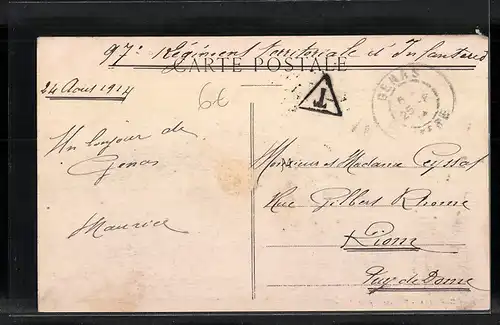 97e Régiment territoriale d'Infanterie
CARTE POSTALE
24 Aout 1914
6€
T
GENAS
Un bonjour de
Genas
Maurice
Monsieur et Madame Peyssat
Rue Gilbert Romme
Riom
Puy de Dome